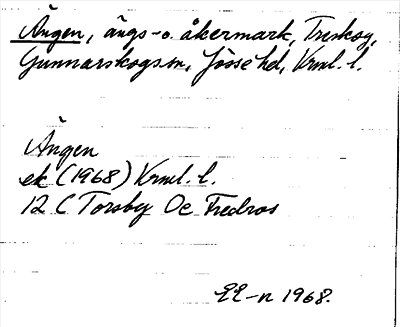 Ängen, ängs- o. åkermark, Treskog,
Gunnarskogs sn, Jösse hd, Vrml. l.
Ängen
ek (1968) Vrml. l.
12 C Torsby 0e Fredros
1968.